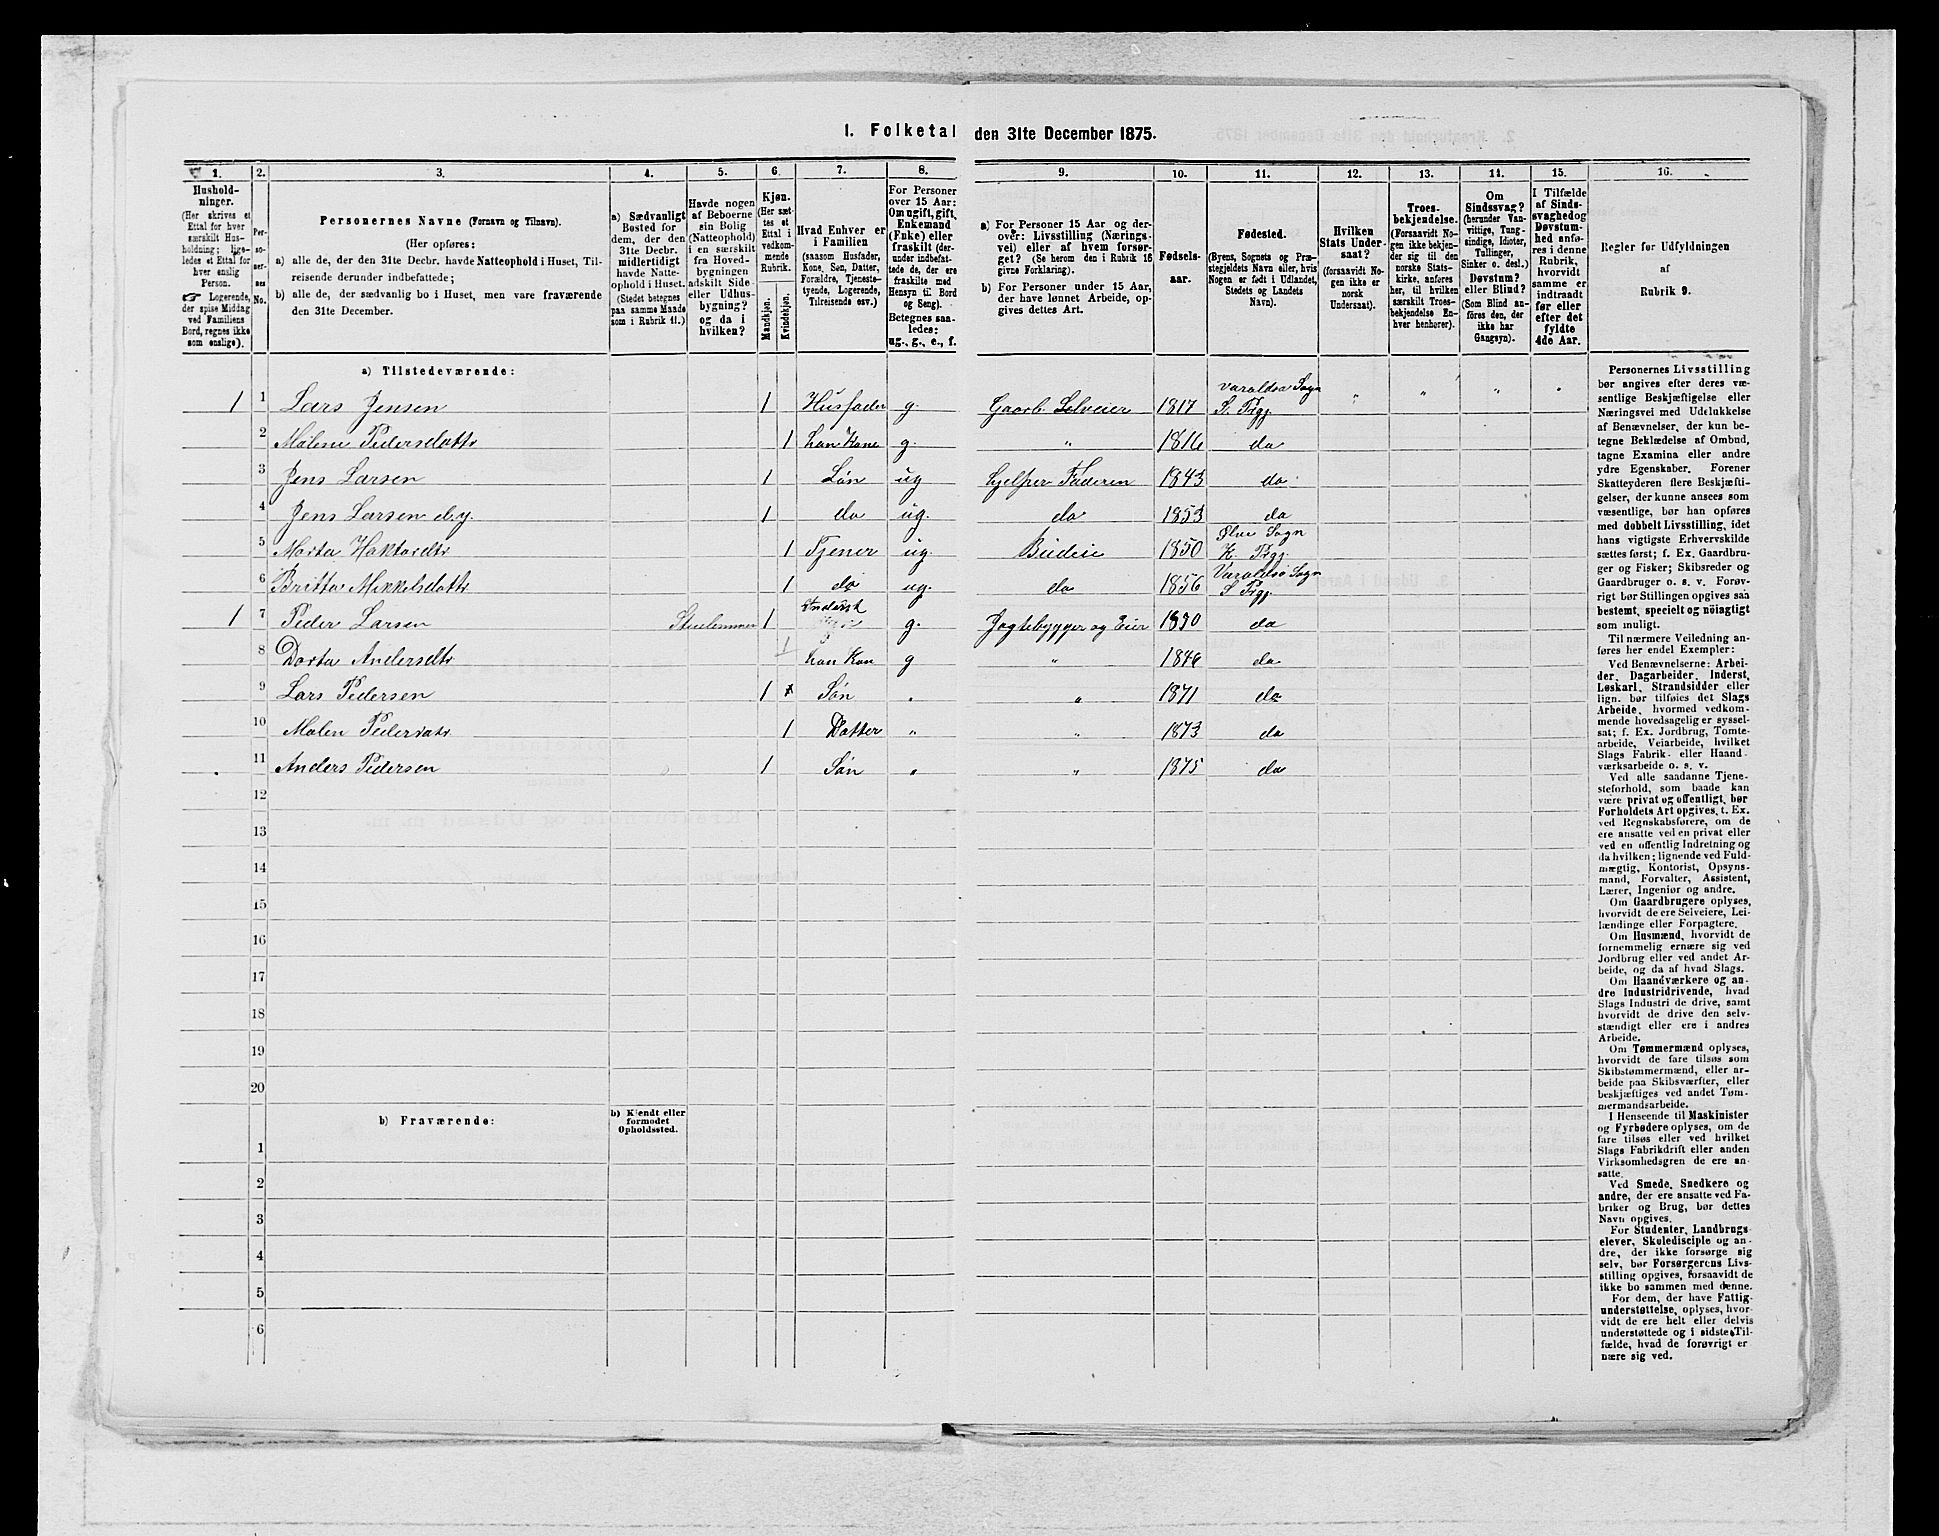 1. Folketal den 31te December 1875.
1. 2. 3. 4. 5. 6. 7. 8. 9. 10. 11. 12. 13. 14. 15. 16.
Hushold-
ninger.
(Her skrives et
Ettal for hver
særskilt Hus-
holdning; lige-
ledes et Ettal for
hver enslig
Person.
☞ Logerende,
der spise Middag
ved Familiens
Bord, regnes ikke
som enslige).
Per-
so-
ner-
nes
No.
Personernes Navne (Fornavn og Tilnavn).
(Her opføres:
a) alle de, der den 31te Decbr. havde Natteophold i Huset, Til-
reisende derunder indbefattede;
b) alle de, der sædvanlig bo i Huset, men vare fraværende
den 31te December.
a) Sædvanligt
Bosted for
dem, der den
31te Decbr.
midlertidigt
havde Natte-
ophold i Huset.
(Stedet betegnes
paa samme Maade
som i Rubrik 11.)
Havde nogen
af Beboerne
sin Bolig
(Natteophold)
i en særskilt
fra Hoved-
bygningen
adskilt Side-
eller Udhus-
bygning?
og da i
hvilken?
Kjøn.
(Her sæt-
tes et
Ettal i
vedkom-
mende
Rubrik.
Mandkjøn.
Kvindekjøn.
Hvad Enhver er
i Familien
(saasom Husfader,
Kone, Søn, Datter,
Forældre, Tjeneste-
tyende, Logerende,
Tilreisende osv.)
For Personer
over 15 Aar:
Om ugift, gift,
Enkemand
(Fuke) eller
fraskilt (der-
under indbefat-
tede de, der ere
fraskilte med
Hensyn til Bord
og Seng).
Betegnes saa-
ledes:
ug., g., e., f.
a) For Personer 15 Aar og der-
over: Livsstilling (Nærings-
vei) eller af hvem forsør-
get? (Se herom den i Rubrik 16
givne Forklaring).
b) For Personer under 15 Aar,
der have lønnet Arbeide, op-
gives dettes Art.
Fødsels-
aar.
Fødested.
(Byens, Sognets og Præ-
stegjeldets Navn eller, hvis
Nogen er født i Udlandet,
Stedets og Landets
Navn).
Hvilken
Stats Under-
saat?
(forsaavidt No-
gen ikke er
norsk
Undersaat).
Troes-
bekjendelse.
(Forsaavidt No-
gen ikke bekjen-
der sig til den
norske Stats-
kirke, anføres
her, til hvilken
særskilt Troes-
bekjendelse En-
hver henhører).
Om
Sindssvag?
(herunder Van-
vittige, Tung-
sindige, Idioter,
Tullinger,
Sinker o. desl.)
Døvstum?
eller Blind?
(Som Blind an-
føres den, der
ikke har
Gangsyn).
I Tilfælde
af Sinds-
svaghed og
Døvstum-
hed anfø-
res i denne
Rubrik,
hvorvidt
samme er
indtraadt
før eller
efter det
fyldte
4de Aar.
Regler for Udfyldningen
af
Rubrik 9.
a) Tilstedeværende:
1 1 Lars Jensen 1 Husfader g. Gaarb. Selveier 1817 Varaldsø Sogn S. Prgj. " " " "
2 Malene Pedersdattr 1 hans Kone g. " 1816 do
3 Jens Larsen 1 Søn ug hjelper Faderen 1843 do
4 Jens Larsen d.y. 1 do ug. do 1853 do
5 Marta Haktordtr 1 Tjener ug. Budeie 1850 Ølve Sogn K. Prgj.
6 Britta Mikkelsdattr 1 do ug. do 1856 Varaldsø Sogn S Prgj.
1 7 Peder Larsen 1 Inderst g. Jagtebygger og Eier 1830 do
8 Dorta Andersdtr 1 hans Kon g " 1846 do
9 Lars Pedersen 1 Søn " " 1871 do
10 Malen Pedersdtr 1 Datter " " 1873 do
11 Anders Pedersen 1 Søn " " 1875 do
12
13
14
15
16
17
18
19
20
b) Fraværende:
b) Kjendt eller
formodet
Opholdssted.
1
2
3
4
5
6
Personernes Livsstilling
bør angives efter deres væ-
sentlige Beskjæftigelse eller
Næringsvei med Udelukkelse
af Benævnelser, der kun be-
tegne Beklædelse af Ombud,
tagne Examina eller andre
ydre Egenskaber. Forener
Skatteyderen flere Beskjæfti-
gelser, der kunne ansees som
væsentlige, bør han opføres
med dobbelt Livsstilling, idet
hans vigtigste Erhvervskilde
sættes først; f. Ex. Gaardbru-
ger og Fisker; Skibsreder og
Gaardbruger o. s. v. Forøv-
rigt bør Stillingen opgives saa
bestemt, specielt og nøiagtigt
som muligt.
Til nærmere Veiledning an-
føres her endel Exempler:
Ved Benævnelserne: Arbei-
der, Dagarbeider, Inderst,
Løskarl, Strandsidder eller
lign. bør tilføies det Slags
Arbeide, hvormed vedkom-
mende hovedsagelig er syssel-
sat; f. Ex. Jordbrug, Tomte-
arbeide, Veiarbeide, hvilket
Slags Fabrik- eller Haand-
værksarbeide o. s. v.
Ved alle saadanne Tjene-
steforhold, som baade kan
være privat og offentligt, bør
Forholdets Art opgives, t. Ex.
ved Regnskabsførere, om de
ere ansatte ved en privat eller
ved en offentlig Indretning og
da hvilken; lignende ved Fuld-
mægtig, Kontorist, Opsyns-
mand, Forvalter, Assistent,
Lærer, Ingeniør og andre.
Om Gaardbrugere oplyses,
hvorvidt de ere Selveiere, Lei-
lændinge eller Forpagtere.
Om Husmænd, hvorvidt de
fornemmelig ernære sig ved
Jordbrug eller ved andet Ar-
beide, og da af hvad Slags.
Om Haandværkere og an-
dre Industridrivende, hvad
Slags Industri de drive, samt
hvorvidt de drive den selv-
stændigt eller ere i andres
Arbeide.
Om Tømmermænd oplyses,
hvorvidt de fare tilsøs som
Skibstømmermænd, eller ar-
beide paa Skibsværfter, eller
beskjæftiges ved andet Tøm-
mermandsarbeide.
I Henseende til Maskinister
og Fyrbødere oplyses, om de
fare tilsøs eller ved hvilket
Slags Fabrikdrift eller anden
Virksomhedsgren de ere an-
satte.
Ved Smede, Snedkere og
andre, der ere ansatte ved Fa-
briker og Brug, bør dettes
Navn opgives.
For Studenter, Landbrugs-
elever, Skoledisciple og an-
dre, der ikke forsørge sig
selv, bør Forsørgerens Livs-
stilling opgives, forsaavidt de
ikke bo sammen med denne.
For dem, der have Fattig-
understøttelse, oplyses, hvor-
vidt de ere helt eller delvis
understøttede og i sidste Til-
fælde, hvad de forøvrigt er
nære sig ved.